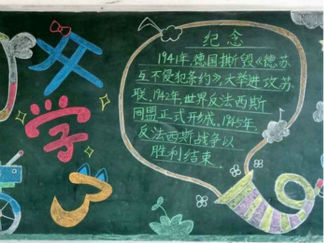 开
学
纪念
1941年,德国撕毁《德苏
互不侵犯条约》大举进攻苏
联,1942年,世界反法西斯
同盟正式形成,1945年,
反法西斯战争以
胜利结束.